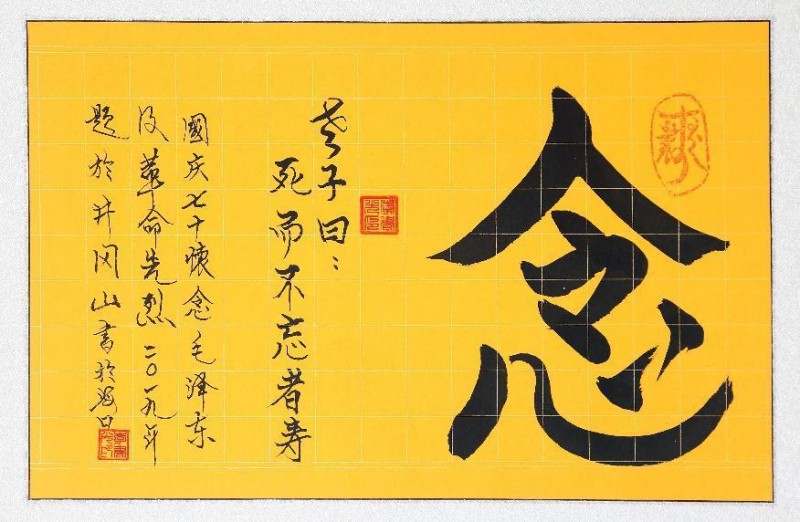 念
老子曰：
死而不忘者寿
國庆七十懷念毛泽东
及革命先烈二〇一九年
题於井冈山書於海口